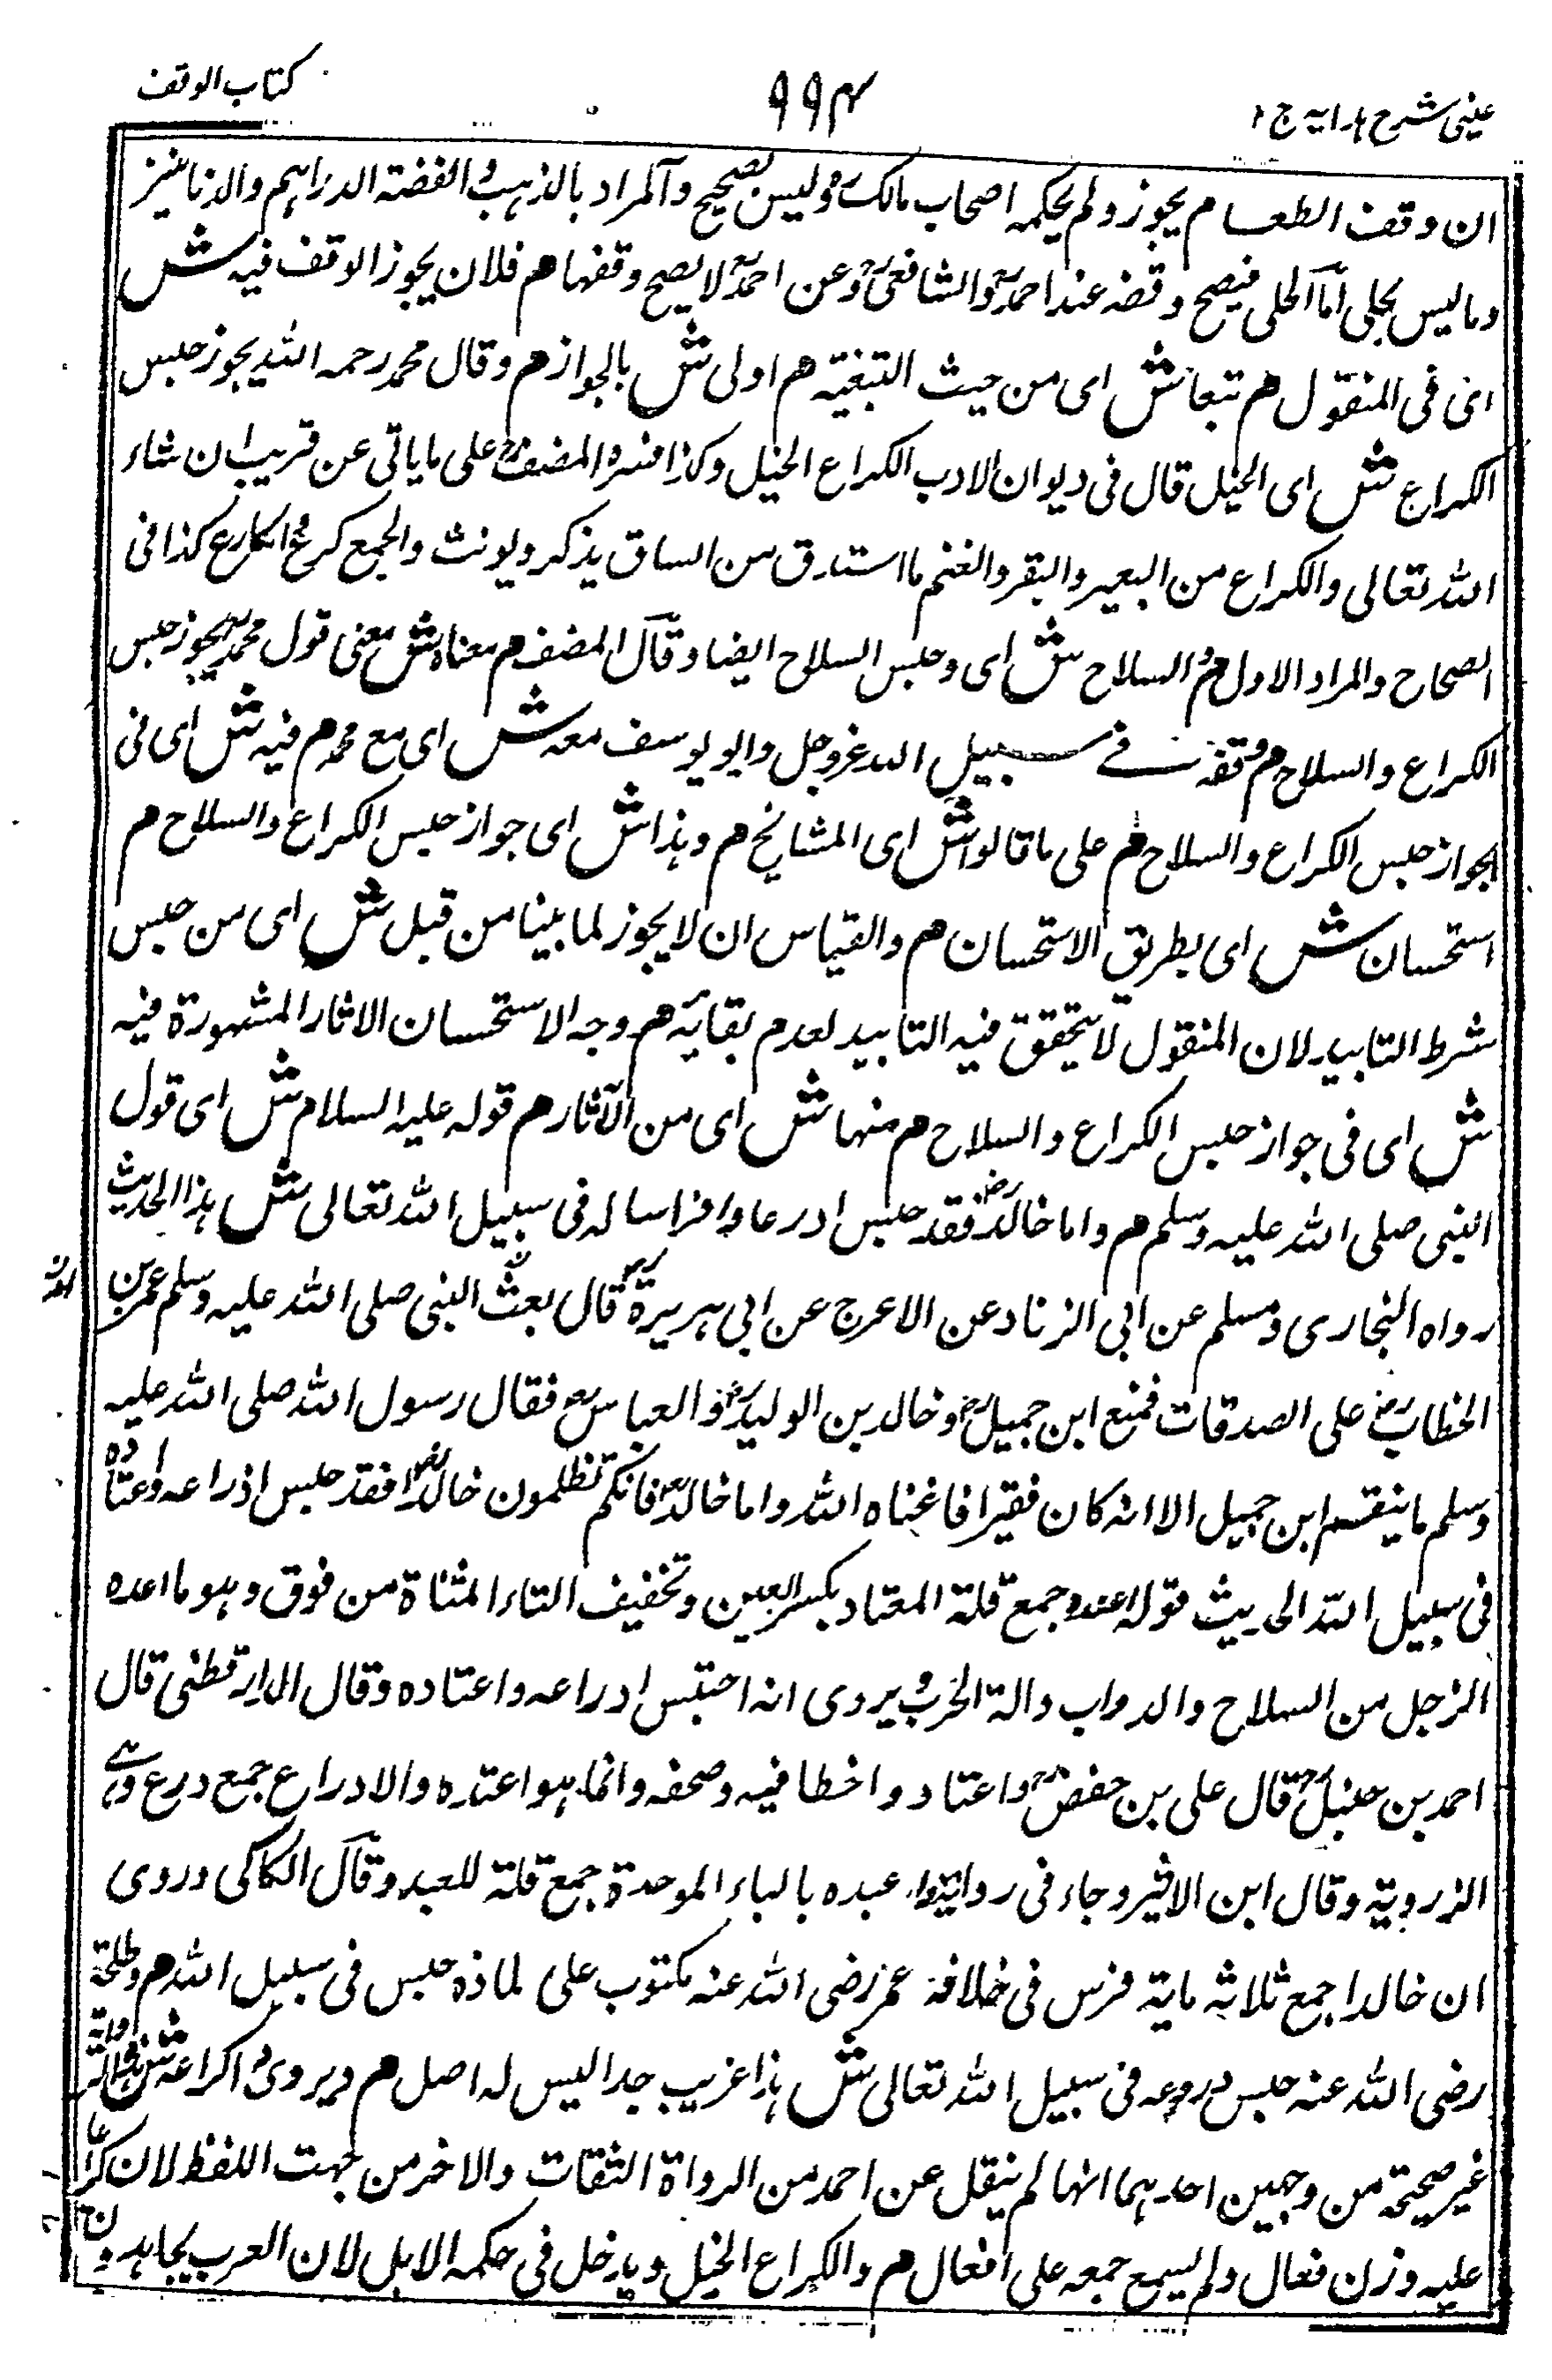 عینی شرح ہدایہ ج ۲
۹۹۴
کتاب الوقف
ان وقف الطعام م یجوز ولم یحکہ اصحاب مالکؒ ولیس بصحیح والمراد بالذہب والفضۃ الدراہم والدنانیر
وما لیس بحلی اما الحلی فیصح وقفہ عند احمدؒ والشافعیؒ وعن احمدؒ لا یصح وقفہا ھم فلان یجوز الوقف فیہ ش
ای فی المنقول ھم تبعا ش ای من حیث التبعیۃ ھم اولی ش بالجواز م وقال محمد رحمہ اللہ یجوز حبس
الکراع ش ای الخیل قال فی دیوان الادب الکراع الخیل وکذا فسرہ المصنفؒ علی ما یاتی عن قریب ان شاء
اللہ تعالی والکراع من البعیر والبقر والغنم ما استدق من الساق یذکر ویونث والجمع اکرع ثم اکارع کذا فی
الصحاح والمراد الاول م والسلاح ش ای وحبس السلاح ایضا وقال المصنف م معناہ ش معنی قول محمدؒ یجوز حبس
الکراع والسلاح م وقفہ فی سبیل اللہ عزوجل وابو یوسف معہ ش ای مع محمد م فیہ ش ای فی
جواز حبس الکراع والسلاح م علی ما قالوا ش ای المشایخ م وہذا ش ای جواز حبس الکراع والسلاح م
استحسان ش ای بطریق الاستحسان م والقیاس ان لا یجوز لما بینا من قبل ش ای من حبس
شرط التابید لان المنقول لا یتحقق فیہ التابید لعدم بقایہ ھم وجہ الاستحسان الاثار المشہورۃ فیہ
ش ای فی جواز حبس الکراع والسلاح م منہا ش ای من الآثار ھم قولہ علیہ السلام ش ای قول
النبی صلی اللہ علیہ وسلم م واما خالدؓ فقد حبس ادرعا وافراسا لہ فی سبیل اللہ تعالی ش ہذا الحدیث
رواہ البخاری ومسلم عن ابی الزناد عن الاعرج عن ابی ہریرۃؓ قال بعث النبی صلی اللہ علیہ وسلم عمر بن
الخطابؓ علی الصدقات فمنع ابن جمیلؓ وخالد بن الولیدؓ والعباسؓ فقال رسول اللہ صلی اللہ علیہ
وسلم ما ینقم ابن جمیل الا انہ کان فقیرا فاغناہ اللہ واما خالدؓ فانکم تظلمون خالداؓ فقد حبس ادراعہ واعتادہ
فی سبیل اللہ الحدیث قولہ اعتدہ جمع قلۃ المعتاد بکسر العین وتخفیف التاء المثناۃ من فوق وہو ما اعدہ
الرجل من السلاح والدواب والۃ الحرب ویروی انہ احتبس ادراعہ واعتادہ وقال الدارقطنی قال
احمد بن حنبلؒ قال علی بن حفصؒ واعتادہ واخطا فیہ وصحفہ وانما ہو اعتدہ والادراع جمع درع وہی
الزردیۃ وقال ابن الاثیر وجاء فی روایۃ اعبدہ بالباء الموحدۃ جمع قلۃ للعبد وقال الکاکی وروی
ان خالدا جمع ثلاثہ مایۃ فرس فی خلافۃ عمر رضی اللہ عنہ مکتوب علی افخاذہ حبس فی سبیل اللہ م وطلحۃ
رضی اللہ عنہ حبس دروعہ فی سبیل اللہ تعالی ش ہذا غریب جدا لیس لہ اصل م ویروی واکراعہ ش
غیر صحیحۃ من وجہین احدہما انہا لم ینقل عن احد من الرواۃ الثقات والاخر من جہت اللفظ لان
علیہ وزن فعال ولم یسمع جمعہ علی افعال م والکراع الخیل ویدخل فی حکمہ الابل لان العرب یجاہدون